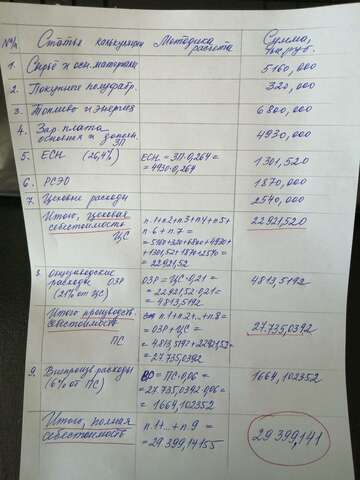 №п/п Статьи калькуляции Методика расчета Сумма, тыс.руб.
1. Сырьё и осн. материалы 5160,000
2. Покупные полуфабр. 320,000
3. Топливо и энергия 6800,000
4. Зар. плата основная и дополн. ЗП 4930,000
5. ЕСН (26,4%) ЕСН = ЗП·0,264 = 1301,520
= 4930·0,264
6. РСЭО 1870,000
7. Цеховые расходы 2540,000
Итого, цеховая п.1+п2+п3+п4+п5+ 22921,520
себестоимость п.6+п.7=
ЦС =5160+320+6800+4930+
+1301,52+1870+2540=
= 22921,52
8. Общезаводские ОЗР = ЦС·0,21= 4813,5192
расходы ОЗР = 22921,52·0,21=
(21% от ЦС) = 4813,5192
Итого производств. п.1+п2+..+п.8= 27.735,0392
себестоимость = ОЗР + ЦС =
ПС = 4813,5192+22921,52=
= 27.735,0392
9. Внепроизв. расходы = ПС·0,06= 1664,102352
(6% от ПС) = 27.735,0392·0,06=
= 1664,102352
Итого, полная п.1+..+п.9= 29399,141
себестоимость = 29399,14155